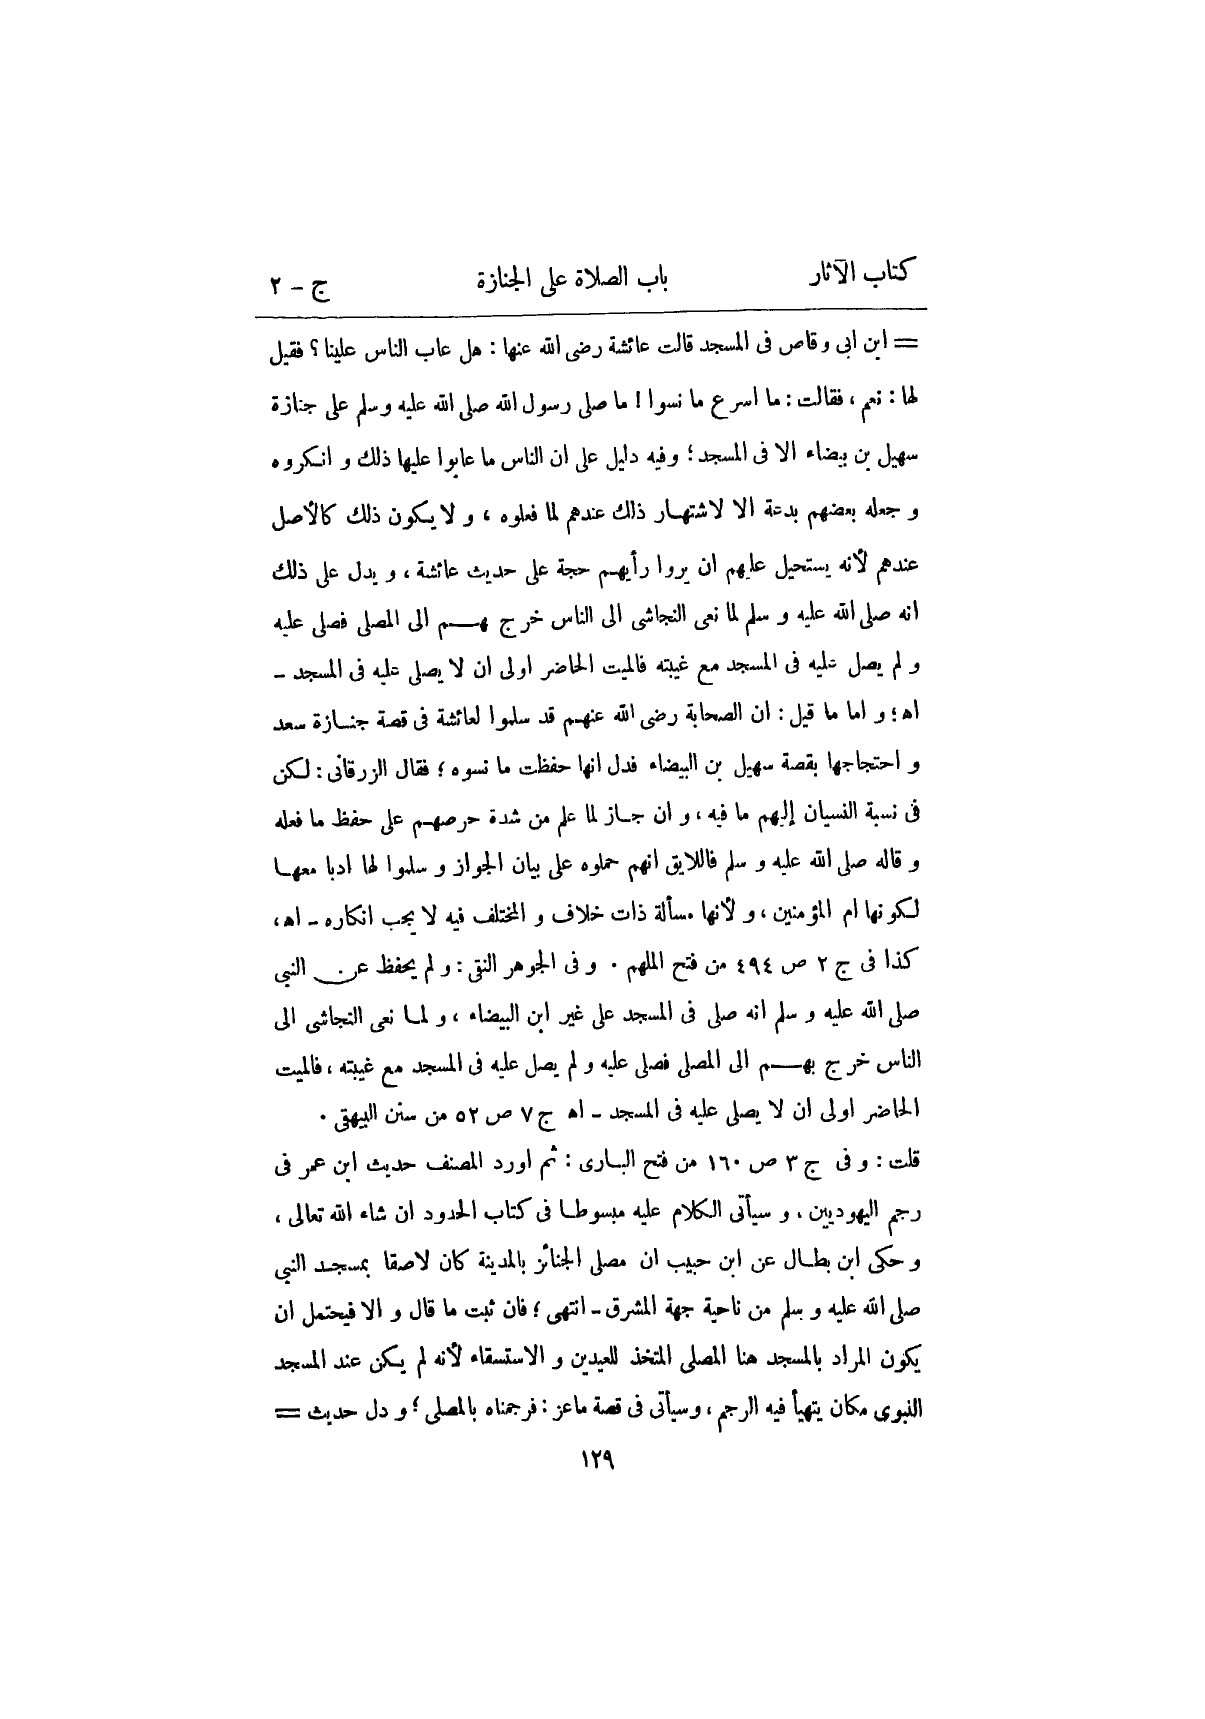 كتاب الآثار باب الصلاة على الجنازة ج - ٢
= ابن ابى وقاص فى المسجد قالت عائشة رضى الله عنها : هل عاب الناس علينا ؟ فقيل
لها : نعم ، فقالت : ما اسرع ما نسوا ! ما صلى رسول الله صلى الله عليه وسلم على جنازة
سهيل بن بيضاء الا فى المسجد ؛ وفيه دليل على ان الناس ما عابوا عليها ذلك و انكروه
و جعله بعضهم بدعة الا لاشتهار ذلك عندهم لما فعلوه ، و لا يكون ذلك كالأصل
عندهم لأنه يستحيل عليهم ان يروا رأيهم حجة على حديث عائشة ، و يدل على ذلك
انه صلى الله عليه و سلم لما نعى النجاشى الى الناس خرج بهم الى المصلى فصلى عليه
و لم يصل عليه فى المسجد مع غيبته فالميت الحاضر اولى ان لا يصلى عليه فى المسجد -
اه ؛ و اما ما قيل : ان الصحابة رضى الله عنهم قد سلموا لعائشة فى قصة جنازة سعد
و احتجاجها بقصة سهيل بن البيضاء فدل انها حفظت ما نسوه ؛ فقال الزرقانى : لكن
فى نسبة النسيان إليهم ما فيه ، و ان جاز لما علم من شدة حرصهم على حفظ ما فعله
و قاله صلى الله عليه و سلم فاللايق انهم حملوه على بيان الجواز و سلموا لها ادبا معها
لكونها ام المؤمنين ، و لأنها مسألة ذات خلاف و المختلف فيه لا يجب انكاره - اه ،
كذا فى ج ٢ ص ٤٩٤ من فتح الملهم . و فى الجوهر النقى : و لم يحفظ عن النبي
صلى الله عليه و سلم انه صلى فى المسجد على غير ابن البيضاء ، و لما نعى النجاشى الى
الناس خرج بهم الى المصلى فصلى عليه و لم يصل عليه فى المسجد مع غيبته ، فالميت
الحاضر اولى ان لا يصلى عليه فى المسجد - اه ج ٧ ص ٥٢ من سنن البيهقى .
قلت : و فى ج ٣ ص ١٦٠ من فتح البارى : ثم اورد المصنف حديث ابن عمر فى
رجم اليهوديين ، و سيأتى الكلام عليه مبسوطا فى كتاب الحدود ان شاء الله تعالى ،
و حكى ابن بطال عن ابن حبيب ان مصلى الجنائز بالمدينة كان لاصقا بمسجد النبي
صلى الله عليه و سلم من ناحية جهة المشرق - انتهى ؛ فان ثبت ما قال و الا فيحتمل ان
يكون المراد بالمسجد هنا المصلى المتخذ للعيدين و الاستسقاء لأنه لم يكن عند المسجد
النبوى مكان يتهيأ فيه الرجم ، وسيأتى فى قصة ماعز : فرجمناه بالمصلى ؛ و دل حديث =
١٢٩